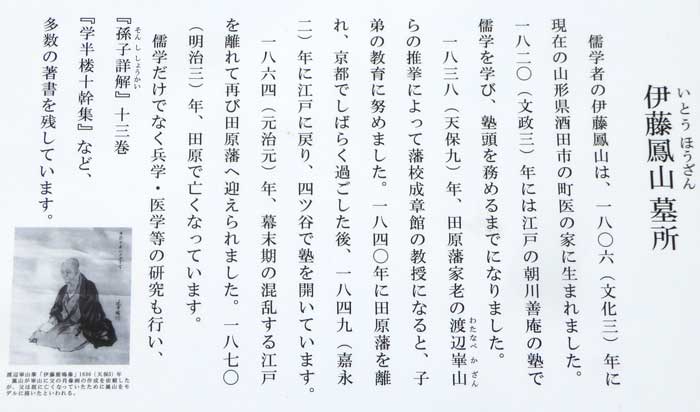 いとう ほうざん
伊藤鳳山 墓所
儒学者の伊藤鳳山は、一八〇六（文化三）年に
現在の山形県酒田市の町医の家に生まれました。
一八二〇（文政三）年には江戸の朝川善庵の塾で
儒学を学び、塾頭を務めるまでになりました。
一八三八（天保九）年、田原藩家老の渡辺崋山
わたなべ か ざん
らの推挙によって藩校成章館の教授になると、子
弟の教育に努めました。一八四〇年に田原藩を離
れ、京都でしばらく過ごした後、一八四九（嘉永
二）年に江戸に戻り、四ツ谷で塾を開いています。
一八六四（元治元）年、幕末期の混乱する江戸
を離れて再び田原藩へ迎えられました。一八七〇
（明治三）年、田原で亡くなっています。
儒学だけでなく兵学・医学等の研究も行い、
『孫子詳解』十三巻
そん し しょうかい
『学半楼十幹集』など、
多数の著書を残しています。
渡辺崋山筆「伊藤鹿鳴像」1838（天保9）年
鳳山が崋山に父の肖像画の作成を依頼した
が、父は既に亡くなっていたために鳳山をモ
デルに描いたといわれる。